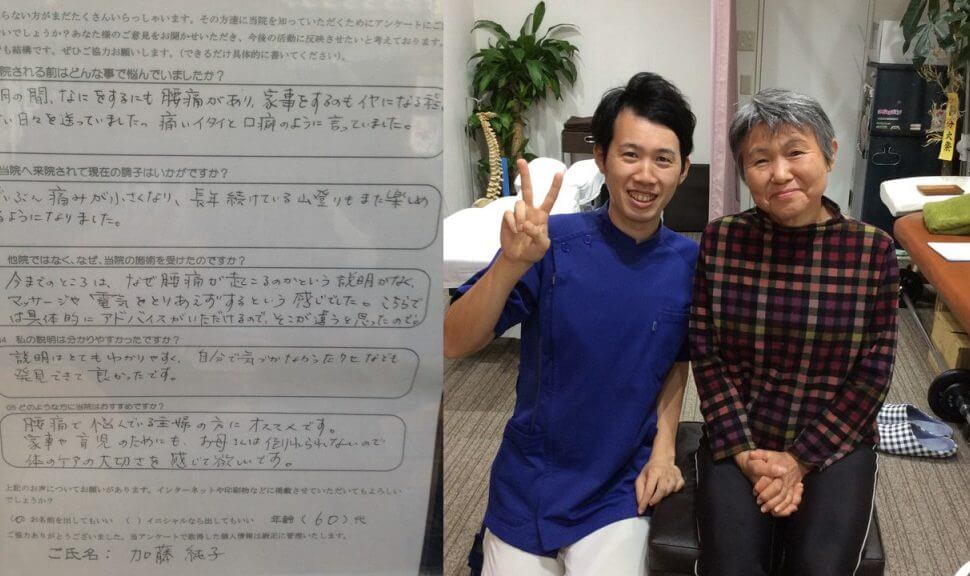 らない方がまだたくさんいらっしゃいます。その方達に当院を知っていただくためにアンケートにご
いでしょうか？あなた様のご意見をお聞かせいただき、今後の活動に反映させたいと考えております。
でも結構です。ぜひご協力お願いします。（できるだけ具体的に書いてください）。
院される前はどんな事で悩んでいましたか？
月の間、なにをするにも腰痛があり、家事をするのもイヤになる程
い日々を送っていました。痛いイタイと口癖のように言っていました。
当院へ来院されて現在の調子はいかがですか？
いぶん痛みが小さくなり、長年続けている山登りもまた楽しめ
るようになりました。
他院ではなく、なぜ、当院の施術を受けたのですか？
今までのところは、なぜ腰痛が起こるのかという説明がなく、
マッサージや電気をとりあえずするという感じでした。こちらで
は具体的にアドバイスがいただけるので、そこが違うと思ったので。
私の説明は分かりやすかったですか？
説明はとてもわかりやすく、自分で気づかなかったクセなども
発見できて良かったです。
Q5 どのような方に当院はおすすめですか？
腰痛で悩んでいる主婦の方にオススメです。
家事や育児のためにも、お母さんは倒れられないので
体のケアの大切さを感じて欲しいです。
上記のお声についてお願いがあります。インターネットや印刷物などに掲載させていただいてもよろしい
でしょうか？
お名前を出してもいい （ ）イニシャルなら出してもいい 年齢（60）代
ご協力ありがとうございました。当アンケートで取得した個人情報は厳正に管理いたします。
ご氏名： 加藤 純子